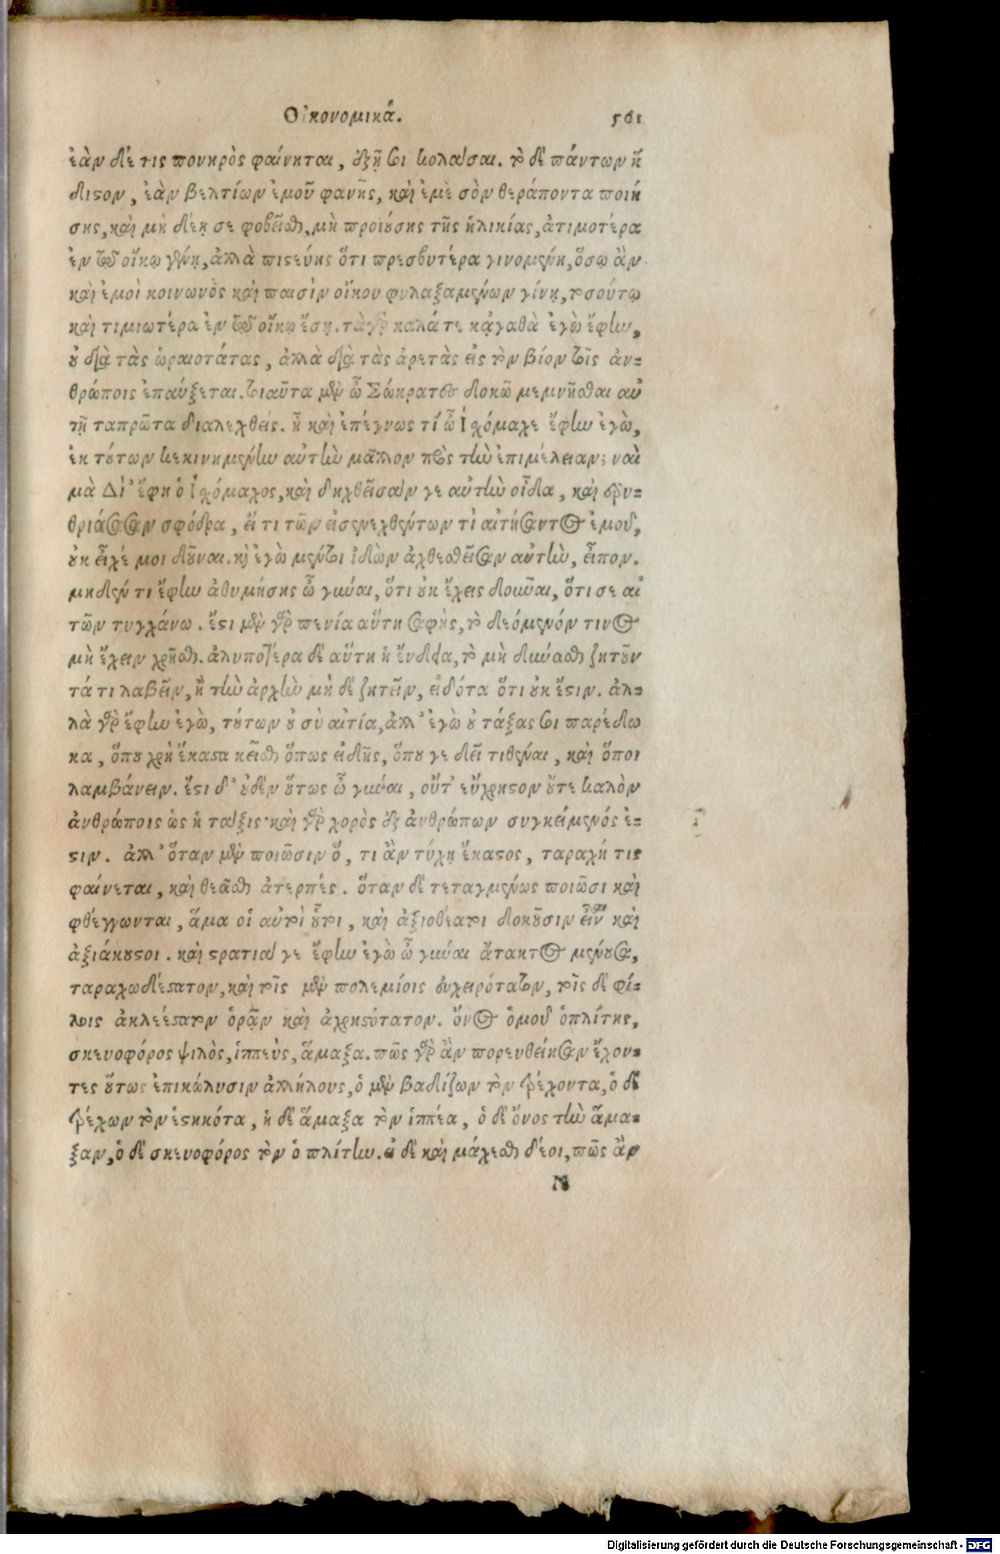 Οἰκονομικά. 561
ἐὰν δέ τις πονηρὸς φαίνηται, ἔξῃ σοι κολάσαι. τὸ δὲ πάντων ἥ
διστον, ἐὰν βελτίων ἐμοῦ φανῇς, καὶ ἐμὲ σὸν θεράποντα ποιή
σῃς, καὶ μὴ δέῃ σε φοβεῖσθαι, μὴ προϊούσης τῆς ἡλικίας, ἀτιμοτέρα
ἐν τῷ οἴκῳ γένῃ, ἀλλὰ πιστεύῃς ὅτι πρεσβυτέρα γινομένη, ὅσῳ ἂν
καὶ ἐμοὶ κοινωνὸς καὶ παισὶν οἴκου φυλαξαμένων γίνῃ, τοσούτῳ
καὶ τιμιωτέρα ἐν τῷ οἴκῳ ἔσῃ. τὰ γὰρ καλά τε κἀγαθὰ ἐγὼ ἔφην,
οὐ διὰ τὰς ὡραιοτάτας, ἀλλὰ διὰ τὰς ἀρετὰς εἰς τὸν βίον τοῖς ἀν=
θρώποις ἐπαύξεται. τοιαῦτα μὲν ὦ Σώκρατες δοκῶ μεμνῆσθαι αὐ
τῇ ταπρῶτα διαλεχθείς. ἦ καὶ ἐπέγνως τί ὦ Ἰχόμαχε ἔφην ἐγὼ,
ἐκ τούτων κεκινημένην αὐτὴν μᾶλλον πρὸς τὴν ἐπιμέλειαν; ναὶ
μὰ Δί' ἔφη ὁ Ἰχόμαχος, καὶ δηχθεῖσαν γε αὐτὴν οἶδα, καὶ ἐρυ=
θριάσασαν σφόδρα, εἴ τι τῶν εἰσενεχθέντων τὶ αἰτήσαντος ἐμοῦ,
οὐκ εἶχέ μοι δοῦναι. καὶ ἐγὼ μέντοι ἰδὼν ἀχθεσθεῖσαν αὐτὴν, εἶπον.
μηδέν τι ἔφην ἀθυμήσῃς ὦ γύναι, ὅτι οὐκ ἔχεις δοῦναι, ὅτι σε αἰ
τῶν τυγχάνω. ἔστι μὲν γὰρ πενία αὕτη σαφής, τὸ δεόμενόν τινος
μὴ ἔχειν χρῆσθαι. ἀλυποτέρα δὲ αὕτη ἡ ἔνδεια, τὸ μὴ δύνασθαι ζητοῦν
τά τι λαβεῖν, ἢ τὴν ἀρχὴν μὴ δὲ ζητεῖν, εἰδότα ὅτι οὐκ ἔστιν. ἀλ=
λὰ γὰρ ἔφην ἐγὼ, τούτων οὐ σὺ αἰτία, ἀλλ' ἐγὼ οὐ τάξας σοι παρέδω
κα, ὅπου χρὴ ἕκαστα κεῖσθαι ὅπως εἰδῇς, ὅπου γε δεῖ τιθέναι, καὶ ὅποι
λαμβάνειν. ἔστι δ' οὐδὲν οὕτως ὦ γύναι, οὔτ' εὔχρηστον οὔτε καλὸν
ἀνθρώποις ὡς ἡ τάξις· καὶ γὰρ χορὸς ἐξ ἀνθρώπων συγκείμενός ἐ=
στιν. ἀλλ' ὅταν μὲν ποιῶσιν ὅ, τι ἂν τύχῃ ἕκαστος, ταραχή τις
φαίνεται, καὶ θεᾶσθαι ἀτερπές. ὅταν δὲ τεταγμένως ποιῶσι καὶ
φθέγγωνται, ἅμα οἱ αὐτοὶ οὗτοι, καὶ ἀξιοθέατοι δοκοῦσιν εἶναι καὶ
ἀξιάκουστοι. καὶ στρατιά γε ἔφην ἐγὼ ὦ γύναι ἄτακτος μένουσα,
ταραχωδέστατον, καὶ τοῖς μὲν πολεμίοις εὐχειρότατον, τοῖς δὲ φί=
λοις ἀκλεέστατον ὁρᾶν καὶ ἀχρηστότατον. ὄνος ὁμοῦ ὁπλίτης,
σκευοφόρος ψιλὸς, ἱππεὺς, ἅμαξα. πῶς γὰρ ἂν πορευθείησαν ἔχον=
τες οὕτως ἐπικώλυσιν ἀλλήλους, ὁ μὲν βαδίζων τὸν τρέχοντα, ὁ δὲ
τρέχων τὸν ἑστηκότα, ἡ δὲ ἅμαξα τὸν ἱππέα, ὁ δὲ ὄνος τὴν ἅμα=
ξαν, ὁ δὲ σκευοφόρος τὸν ὁπλίτην. εἰ δὲ καὶ μάχεσθαι δέοι, πῶς ἂν
N
Digitalisierung gefördert durch die Deutsche Forschungsgemeinschaft - DFG